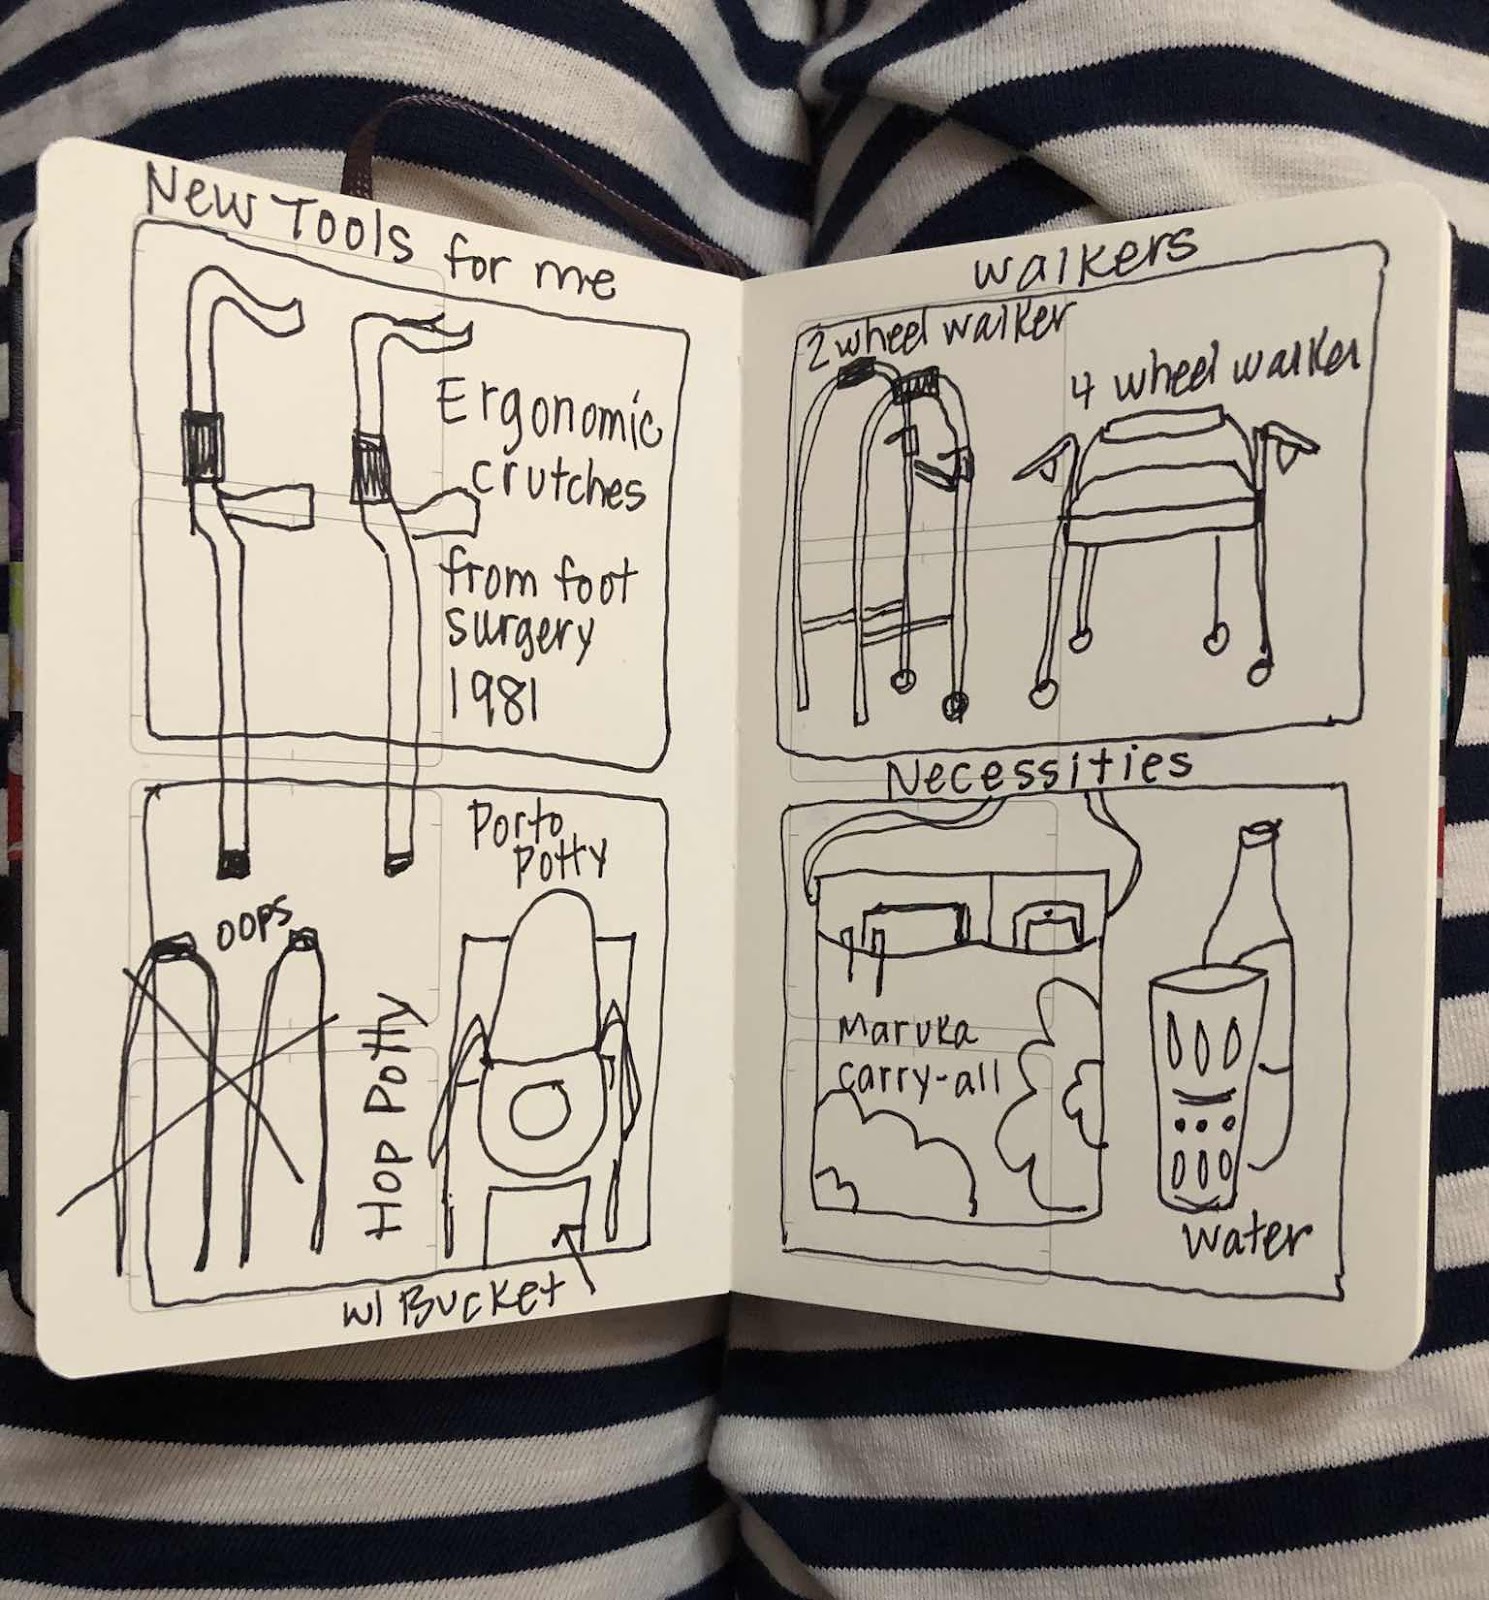 New Tools for me
Ergonomic
crutches
from foot
surgery
1981
oops
Porto
Potty
Hop Potty
w/ Bucket
Walkers
2 wheel walker
4 wheel walker
Necessities
Maruka
carry-all
Water